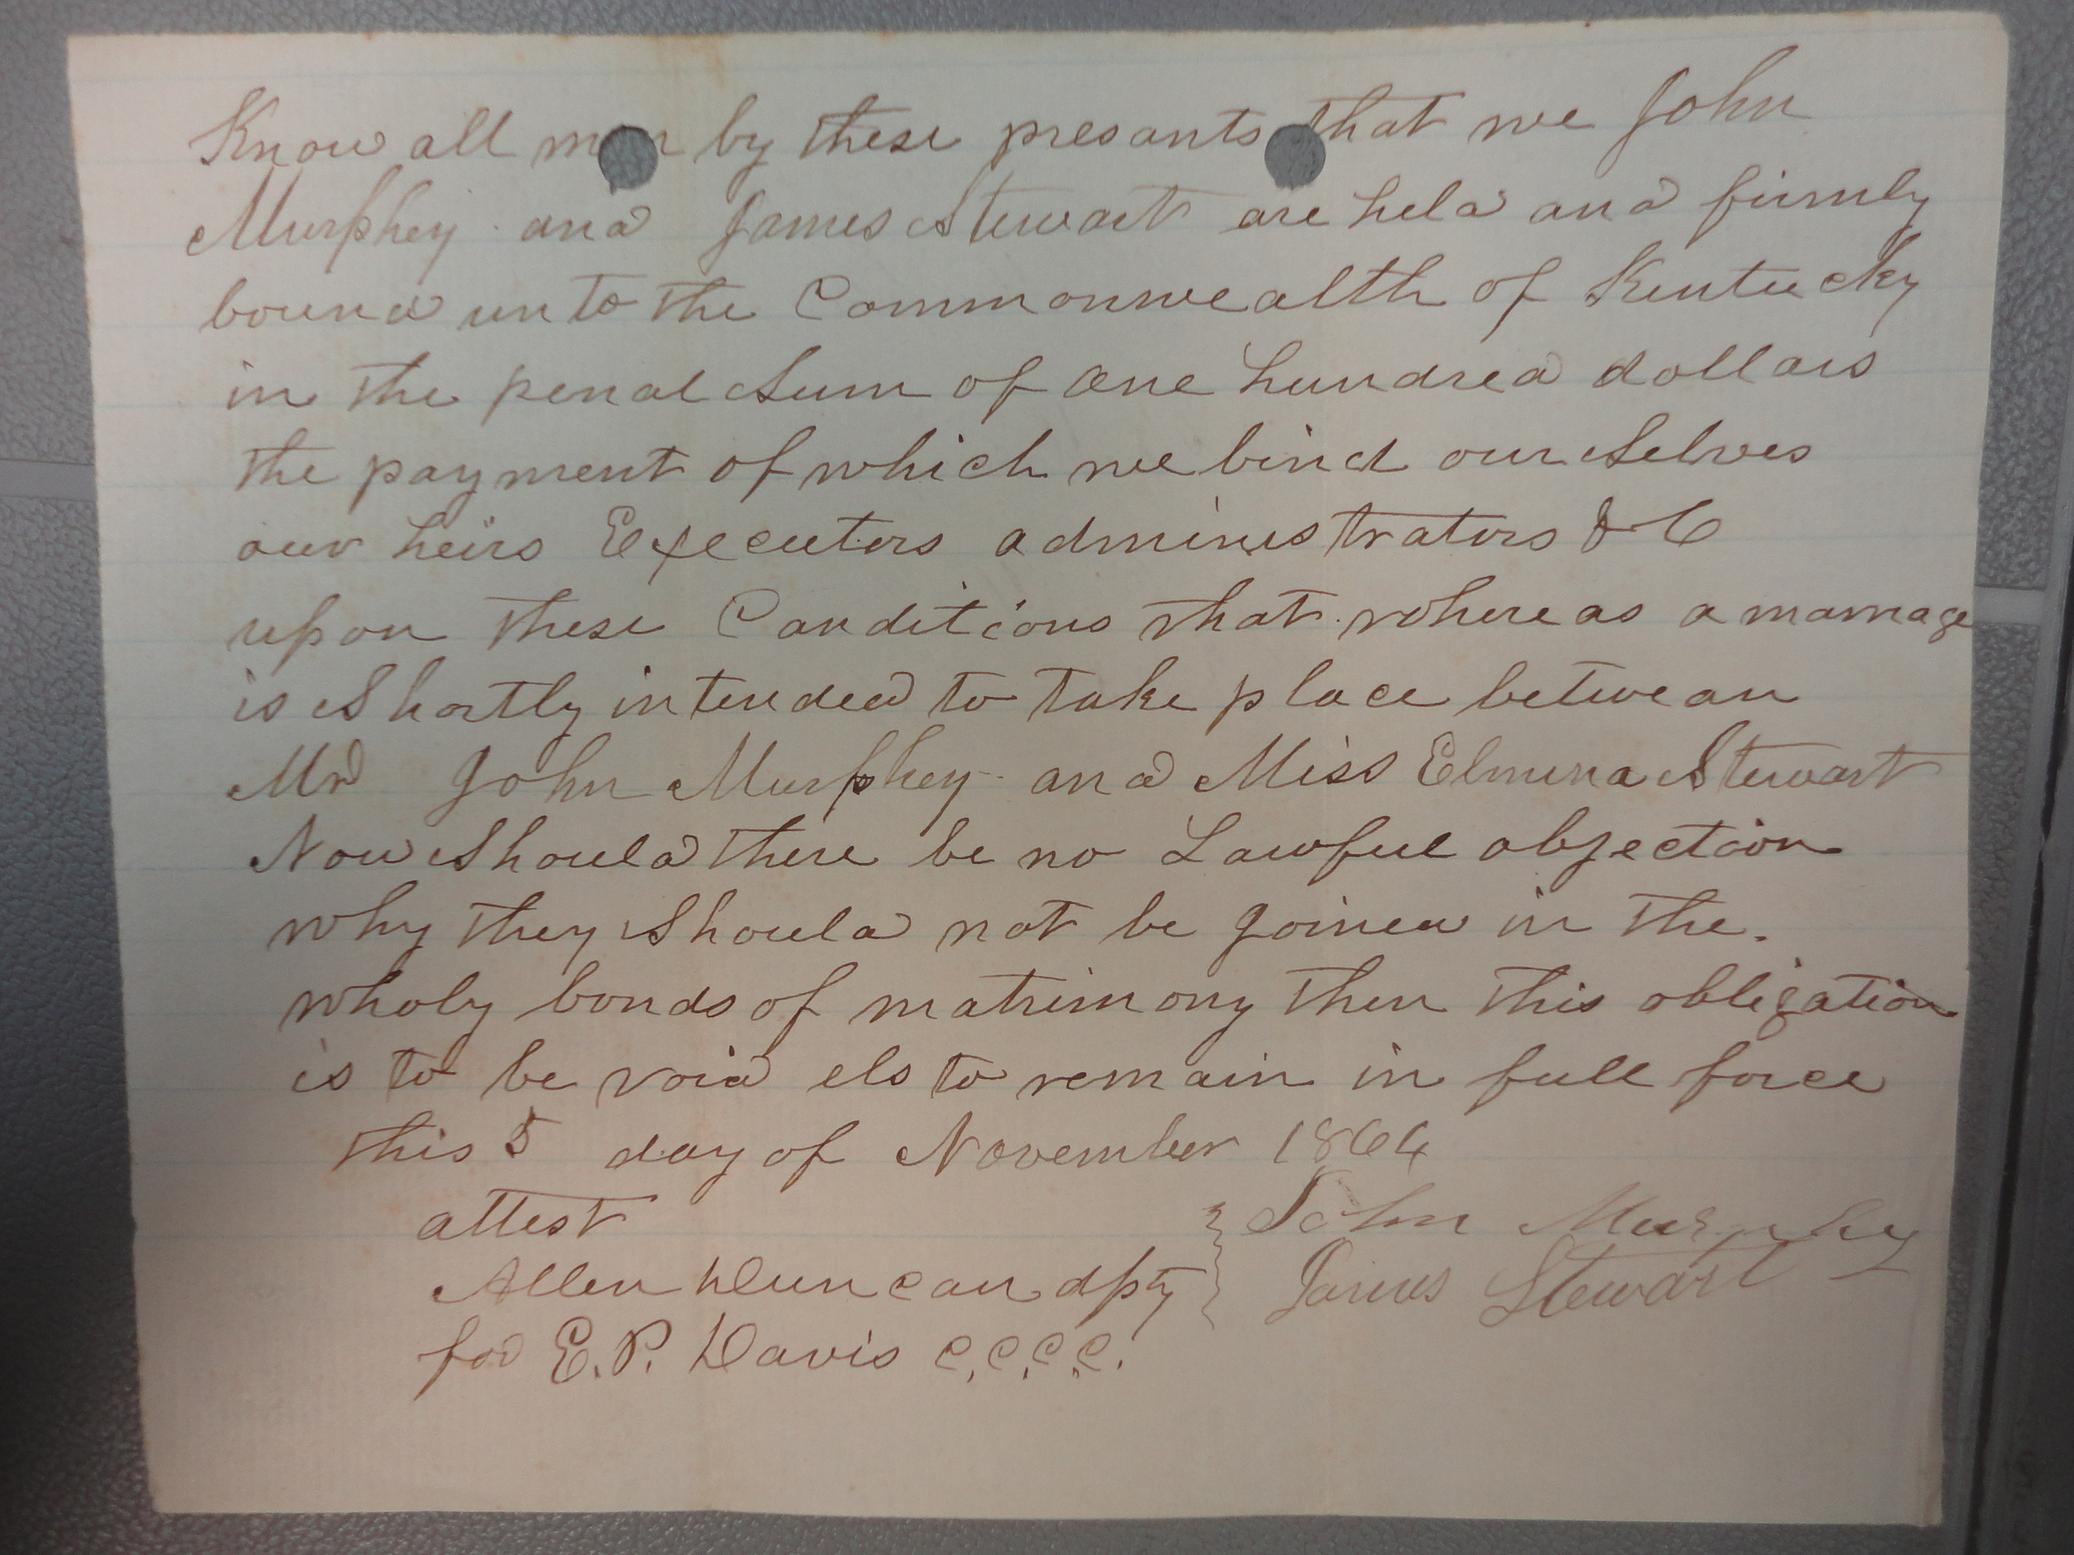 Know all men by these presants that we John
Murphey and James Stewart are held and firmly
bound unto the Commonwealth of Kentucky
in the penal Sum of one hundred dollars
the payment of which we bind our Selves
our heirs Executors administrators &C
upon these Conditions that whereas a marriage
is Shortly intended to take place betwean
Mr John Murphey and Miss Elmina Stewart
Now Should there be no Lawful objection
why they Should not be Joined in the.
wholy bonds of matrimony then this obligation
is to be void els to remain in full force
this 5 day of November 1864
attest
John Murphey
Allen Duncan dpty
James Stewart
for E.P. Davis C.C.C.C.